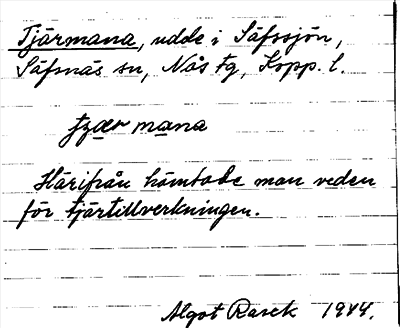 Tjärmana, udde i Säfssjön,
Säfsnäs sn, Nås tg, Kopp. l.
tjær mana
Härifrån hämtade man veden
för tjärtillverkningen.
Algot Rasck 1944.